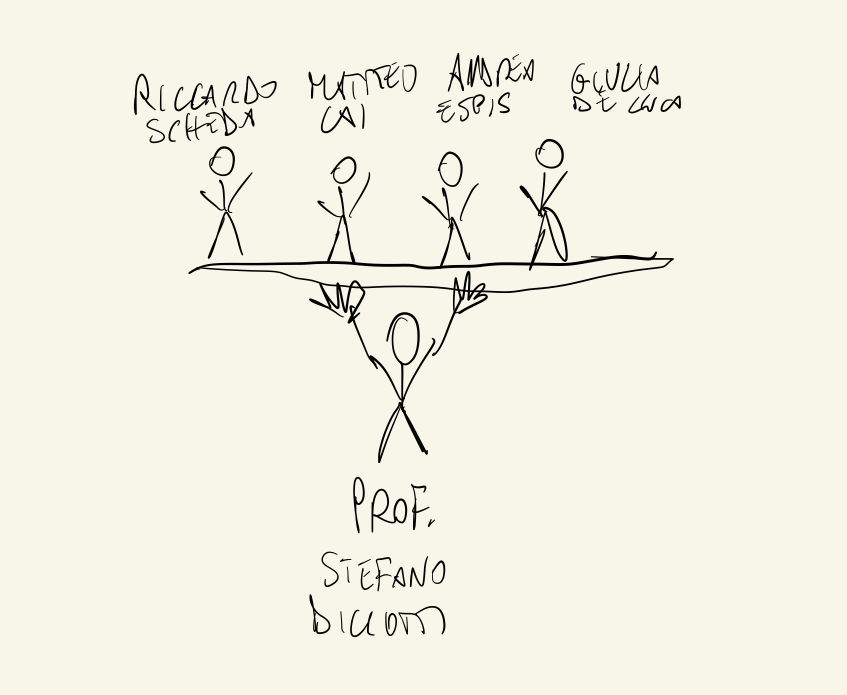 RICCARDO
SCHEDA
MATTEO
CAI
ANDREA
ESPIS
GIULIA
DE LUCA
PROF.
STEFANO